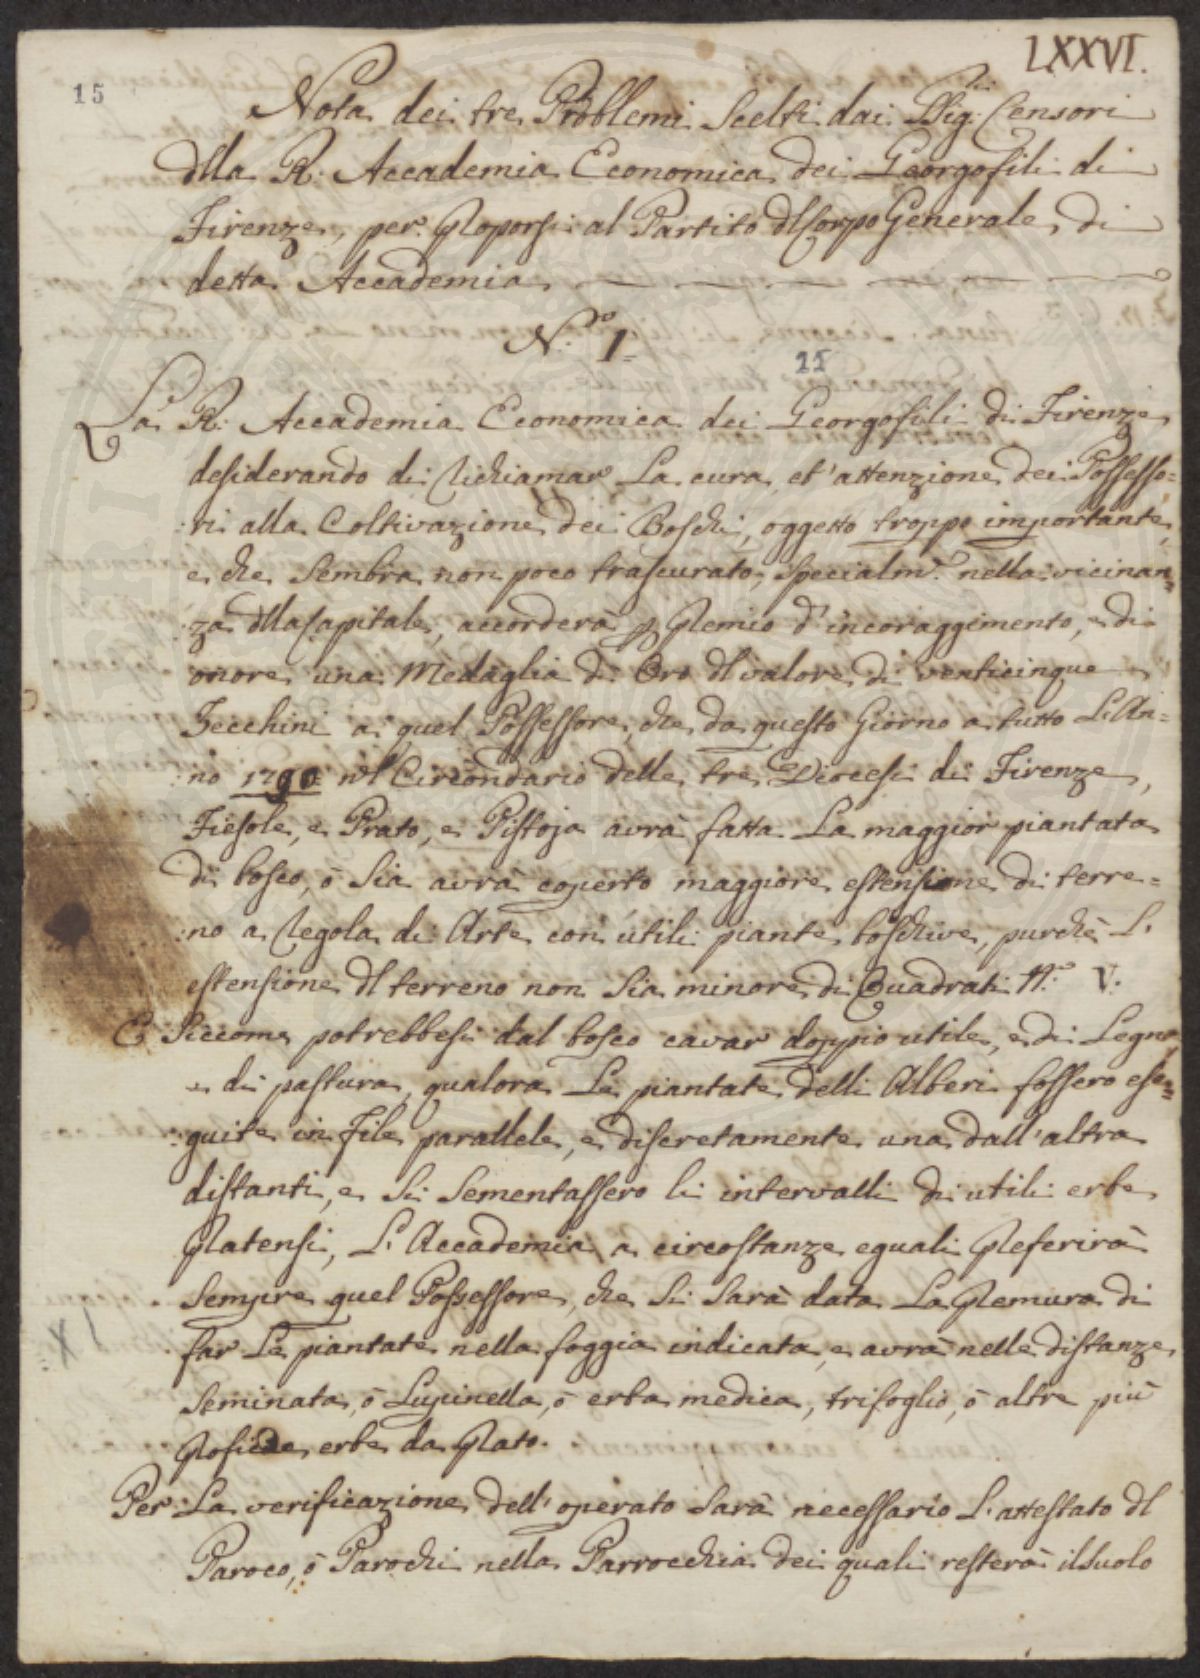 LXXVI.
15
Nota dei tre Problemi Scelti dai Sig: Censori
dlla R. Accademia Economica dei Georgofili di
Firenze, per Proporsi al Partito dl Corpo Generale di
detta Accademia
N.º 1.
11
La R. Accademia Economica dei Georgofili di Firenze
desiderando di richiamar La cura, et' attenzione dei Possesso=
:ri alla Coltivazione dei Boschi, oggetto troppo importante,
e che Sembra non poco trascurato, specialm.e nella vicinan=
:za dlla Capitale, accorderà p Premio d'incoraggimento, e di
onore una Medaglia di Oro dl valore di venticinque
Zecchini a quel Possessore, che da questo Giorno a tutto L'An=
:no 1790 nel Circondario delle tre Diocesi di Firenze,
Fiesole, e Prato, e Pistoja avrà fatta La maggior piantata
di bosco, ò Sia avrà coperto maggiore estensione di terre=
:no a regola di Arte con utili piante boschive, purchè L'
estensione dl terreno non Sia minore di Quadrati N.º V.
E Siccome potrebbesi dal bosco cavar doppio utile, e di Legno
e di pastura, qualora Le piantate delli Alberi fossero ese=
:guite in file parallele, e discretamente una dall'altra
distanti, e Si Sementassero li intervalli di utili erbe
Pratensi, L'Accademia a circostanze eguali Preferirà
Sempre quel Possessore, che Si Sarà data La Premura di
far Le piantate nella foggia indicata, e avrà nelle distanze
Seminata, ò Lupinella, ò erba medica, trifoglio, ò altre più
Proficue erbe da Prato.
Per La verificazione dell'operato Sarà necessario L'attestato dl
Paroco, ò Parochi nella Parrocchia dei quali resterà il Suolo